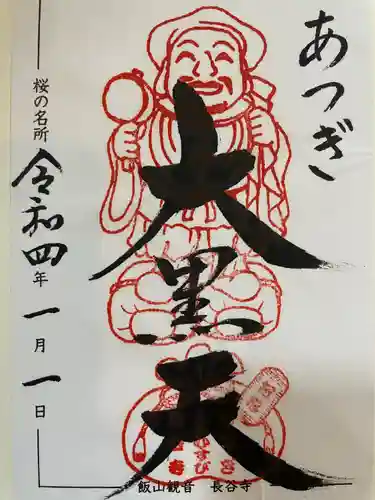 あつぎ
大黒天
桜の名所
令和四年一月一日
飯山観音 長谷寺